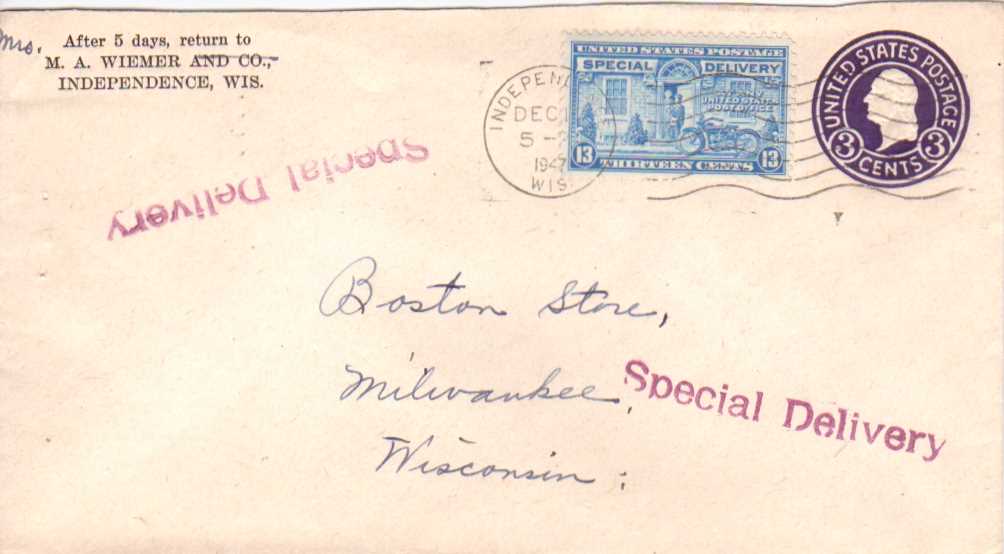 Mrs. After 5 days, return to
M. A. WIEMER AND CO.,
INDEPENDENCE, WIS.
UNITED STATES POSTAGE
SPECIAL DELIVERY
UNITED STATES
POST OFFICE
13 THIRTEEN CENTS 13
UNITED STATES POSTAGE
3 CENTS 3
DEC
5 -
1947
WIS.
Special Delivery
Boston Store,
Milwaukee,
Special Delivery
Wisconsin.